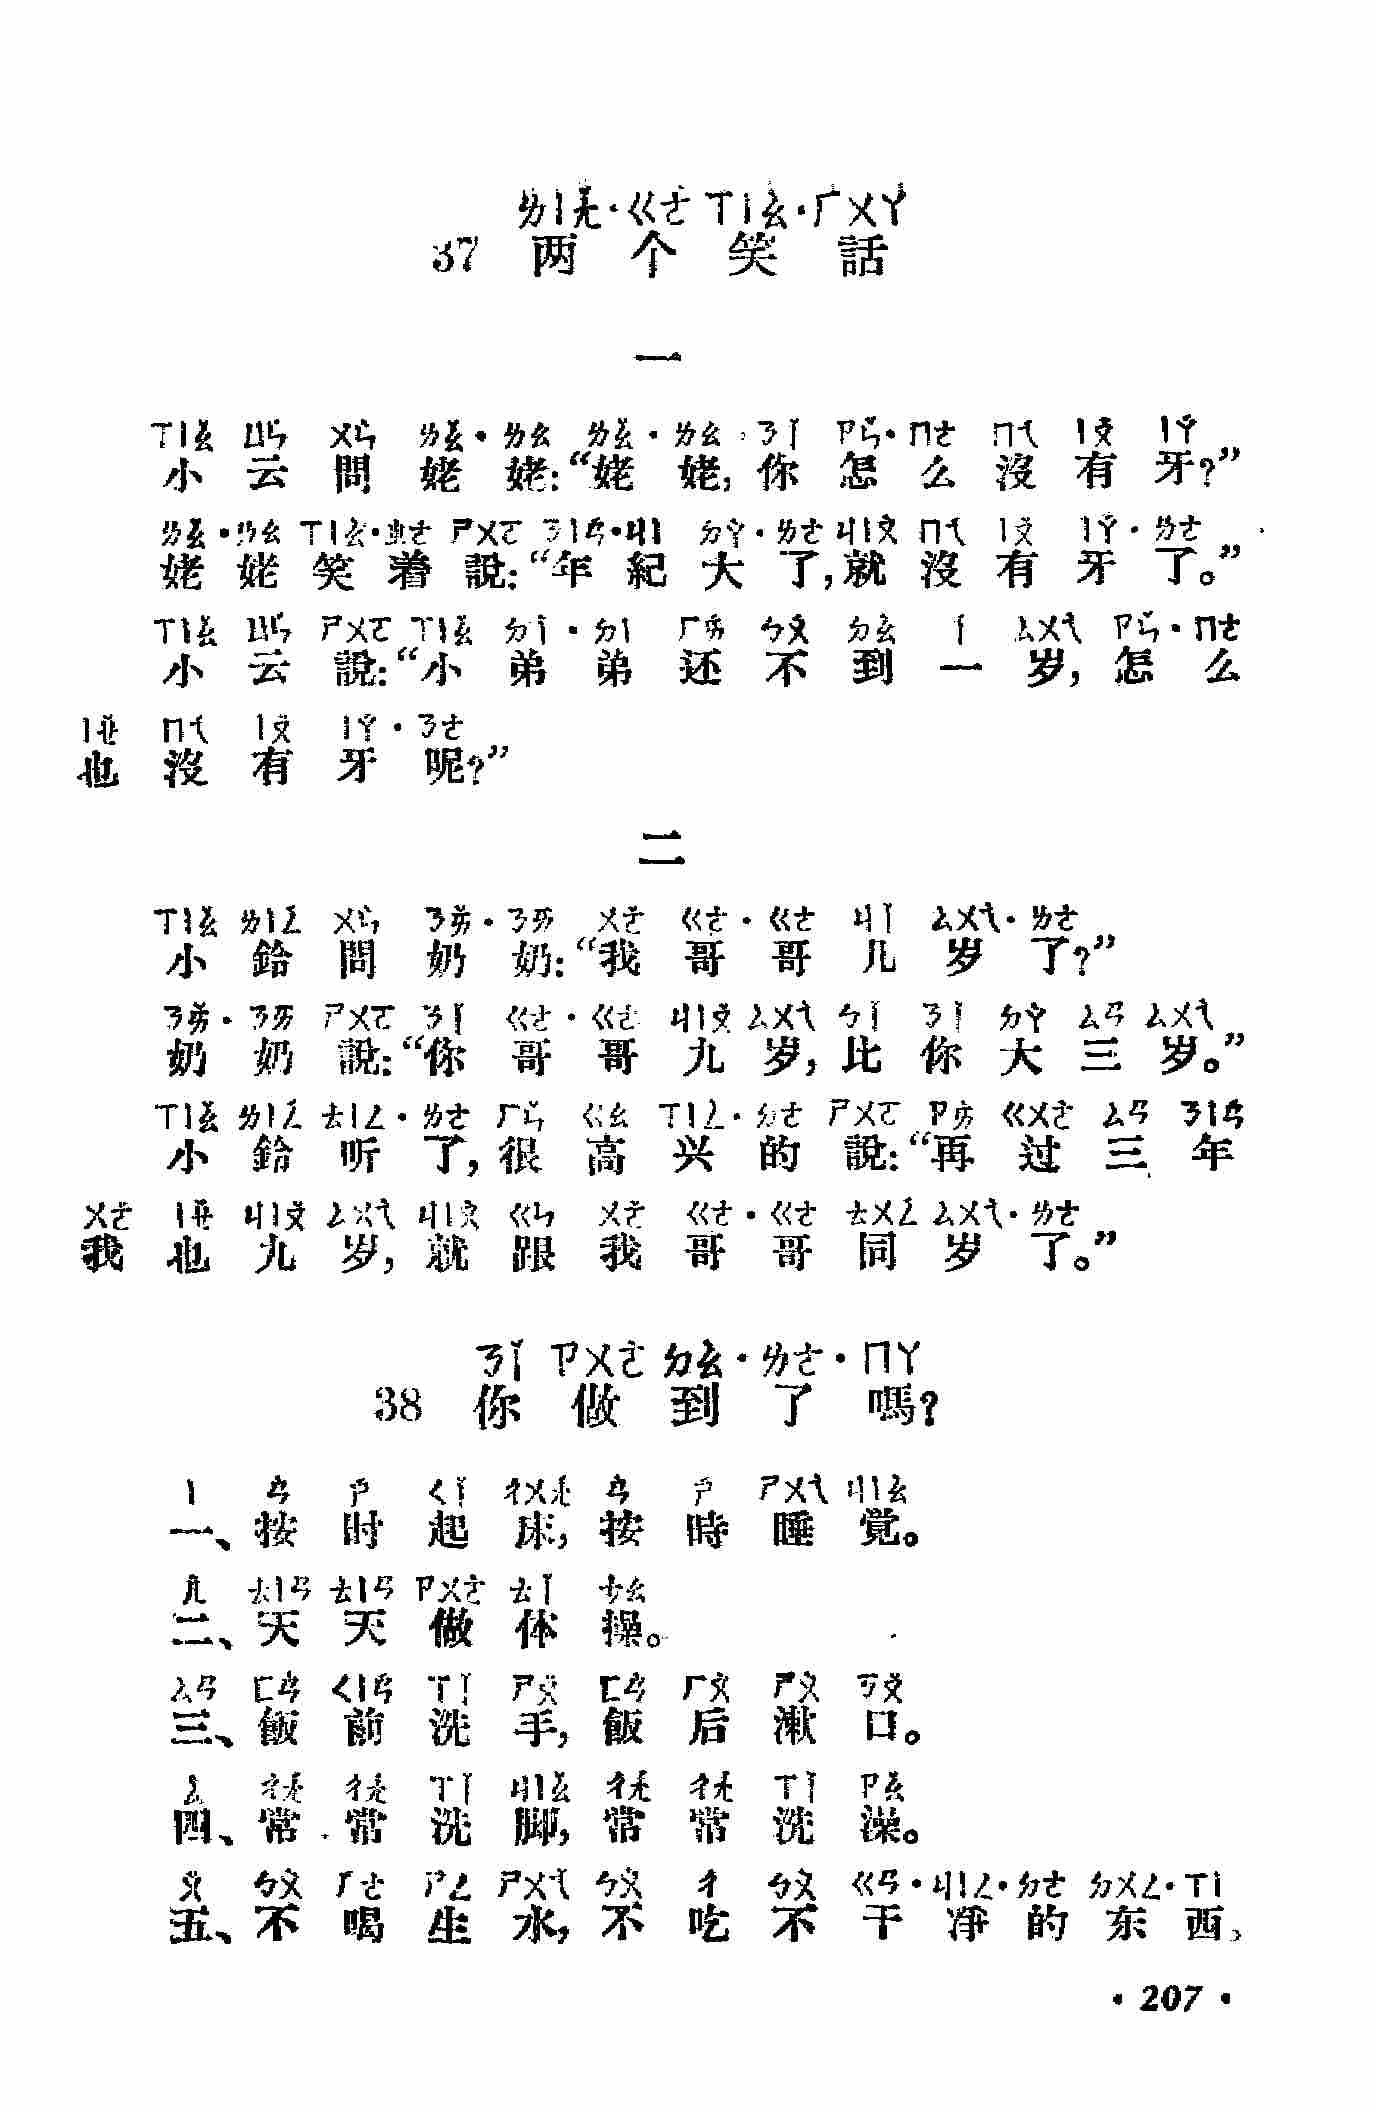 ㄌㄧㄤˇ·ㄍㄜˋ ㄒㄧㄠˋ·ㄏㄨㄚˋ
37 两个笑話
一
ㄒㄧㄠˇ ㄩㄣˊ ㄨㄣˋ ㄌㄠˇ·ㄌㄠ ㄌㄠˇ·ㄌㄠ ㄋㄧˇ ㄗㄣˇ·ㄇㄜ ㄇㄟˊ ㄧㄡˇ ㄧㄚˊ
小云問姥姥:“姥姥,你怎么沒有牙?”
ㄌㄠˇ·ㄌㄠ ㄒㄧㄠˋ·ㄓㄜ ㄕㄨㄛ ㄋㄧㄢˊ·ㄐㄧ ㄉㄚˋ·ㄌㄜ ㄐㄧㄡˋ ㄇㄟˊ ㄧㄡˇ ㄧㄚˊ·ㄌㄜ
姥姥笑着說:“年紀大了,就沒有牙了。”
ㄒㄧㄠˇ ㄩㄣˊ ㄕㄨㄛ ㄒㄧㄠˇ ㄉㄧˋ·ㄉㄧ ㄏㄞˊ ㄅㄨˊ ㄉㄠˋ ㄧˊ ㄙㄨㄟˋ ㄗㄣˇ·ㄇㄜ
小云說:“小弟弟还不到一岁,怎么
ㄧㄝˇ ㄇㄟˊ ㄧㄡˇ ㄧㄚˊ·ㄋㄜ
也沒有牙呢?”
二
ㄒㄧㄠˇ ㄌㄧㄥˊ ㄨㄣˋ ㄋㄞˇ·ㄋㄞ ㄨㄛˇ ㄍㄜ·ㄍㄜ ㄐㄧˇ ㄙㄨㄟˋ·ㄌㄜ
小鈴問奶奶:“我哥哥几岁了?”
ㄋㄞˇ·ㄋㄞ ㄕㄨㄛ ㄋㄧˇ ㄍㄜ·ㄍㄜ ㄐㄧㄡˇ ㄙㄨㄟˋ ㄅㄧˇ ㄋㄧˇ ㄉㄚˋ ㄙㄢ ㄙㄨㄟˋ
奶奶說:“你哥哥九岁,比你大三岁。”
ㄒㄧㄠˇ ㄌㄧㄥˊ ㄊㄧㄥ·ㄌㄜ ㄏㄣˇ ㄍㄠ ㄒㄧㄥˋ·ㄉㄜ ㄕㄨㄛ ㄗㄞˋ ㄍㄨㄛˋ ㄙㄢ ㄋㄧㄢˊ
小鈴听了,很高兴的說:“再过三年
ㄨㄛˇ ㄧㄝˇ ㄐㄧㄡˇ ㄙㄨㄟˋ ㄐㄧㄡˋ ㄍㄣ ㄨㄛˇ ㄍㄜ·ㄍㄜ ㄊㄨㄥˊ ㄙㄨㄟˋ·ㄌㄜ
我也九岁,就跟我哥哥同岁了。”
ㄋㄧˇ ㄗㄨㄛˋ ㄉㄠˋ·ㄌㄜ·ㄇㄚ
38 你做到了嗎?
ㄧ ㄢˋ ㄕˊ ㄑㄧˇ ㄔㄨㄤˊ ㄢˋ ㄕˊ ㄕㄨㄟˋ ㄐㄧㄠˋ
一、按时起床,按時睡觉。
ㄦˋ ㄊㄧㄢ ㄊㄧㄢ ㄗㄨㄛˋ ㄊㄧˇ ㄘㄠ
二、天天做体操。
ㄙㄢ ㄈㄢˋ ㄑㄧㄢˊ ㄒㄧˇ ㄕㄡˇ ㄈㄢˋ ㄏㄡˋ ㄕㄨˋ ㄎㄡˇ
三、飯前洗手,飯后漱口。
ㄙˋ ㄔㄤˊ ㄔㄤˊ ㄒㄧˇ ㄐㄧㄠˇ ㄔㄤˊ ㄔㄤˊ ㄒㄧˇ ㄗㄠˇ
四、常常洗脚,常常洗澡。
ㄨˇ ㄅㄨˋ ㄏㄜ ㄕㄥ ㄕㄨㄟˇ ㄅㄨˋ ㄔ ㄅㄨˋ ㄍㄢ·ㄐㄧㄥ·ㄉㄜ ㄉㄨㄥ·ㄒㄧ
五、不喝生水,不吃不干淨的东西,
·207·